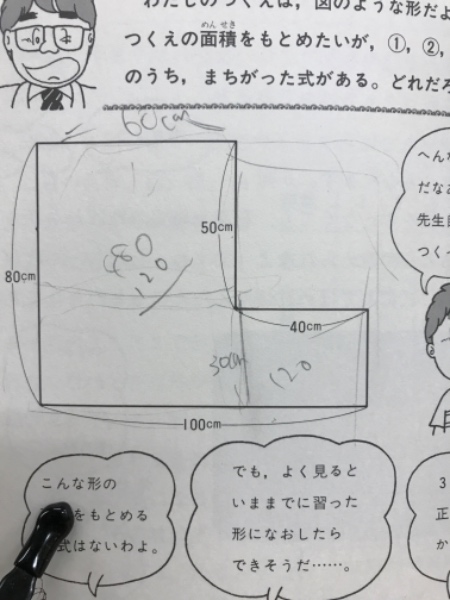 わたしのつくえは，図のような形だよ
めんせき
つくえの面積をもとめたいが，①，②，
のうち，まちがった式がある。どれだろ
60cm
50cm
80cm
480
120
40cm
30cm
120
100cm
へんな
だなあ
先生自
つくっ
こんな形の
をもとめる
式はないわよ。
でも，よく見ると
いままでに習った
形になおしたら
できそうだ……。
3
正
か